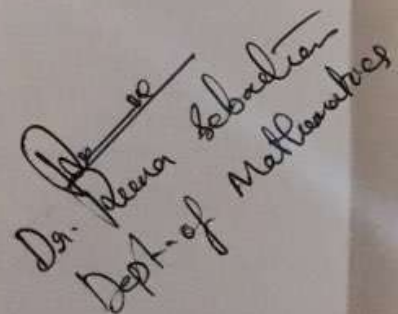 Dr. Reena Sebastian
Dept. of Mathematics